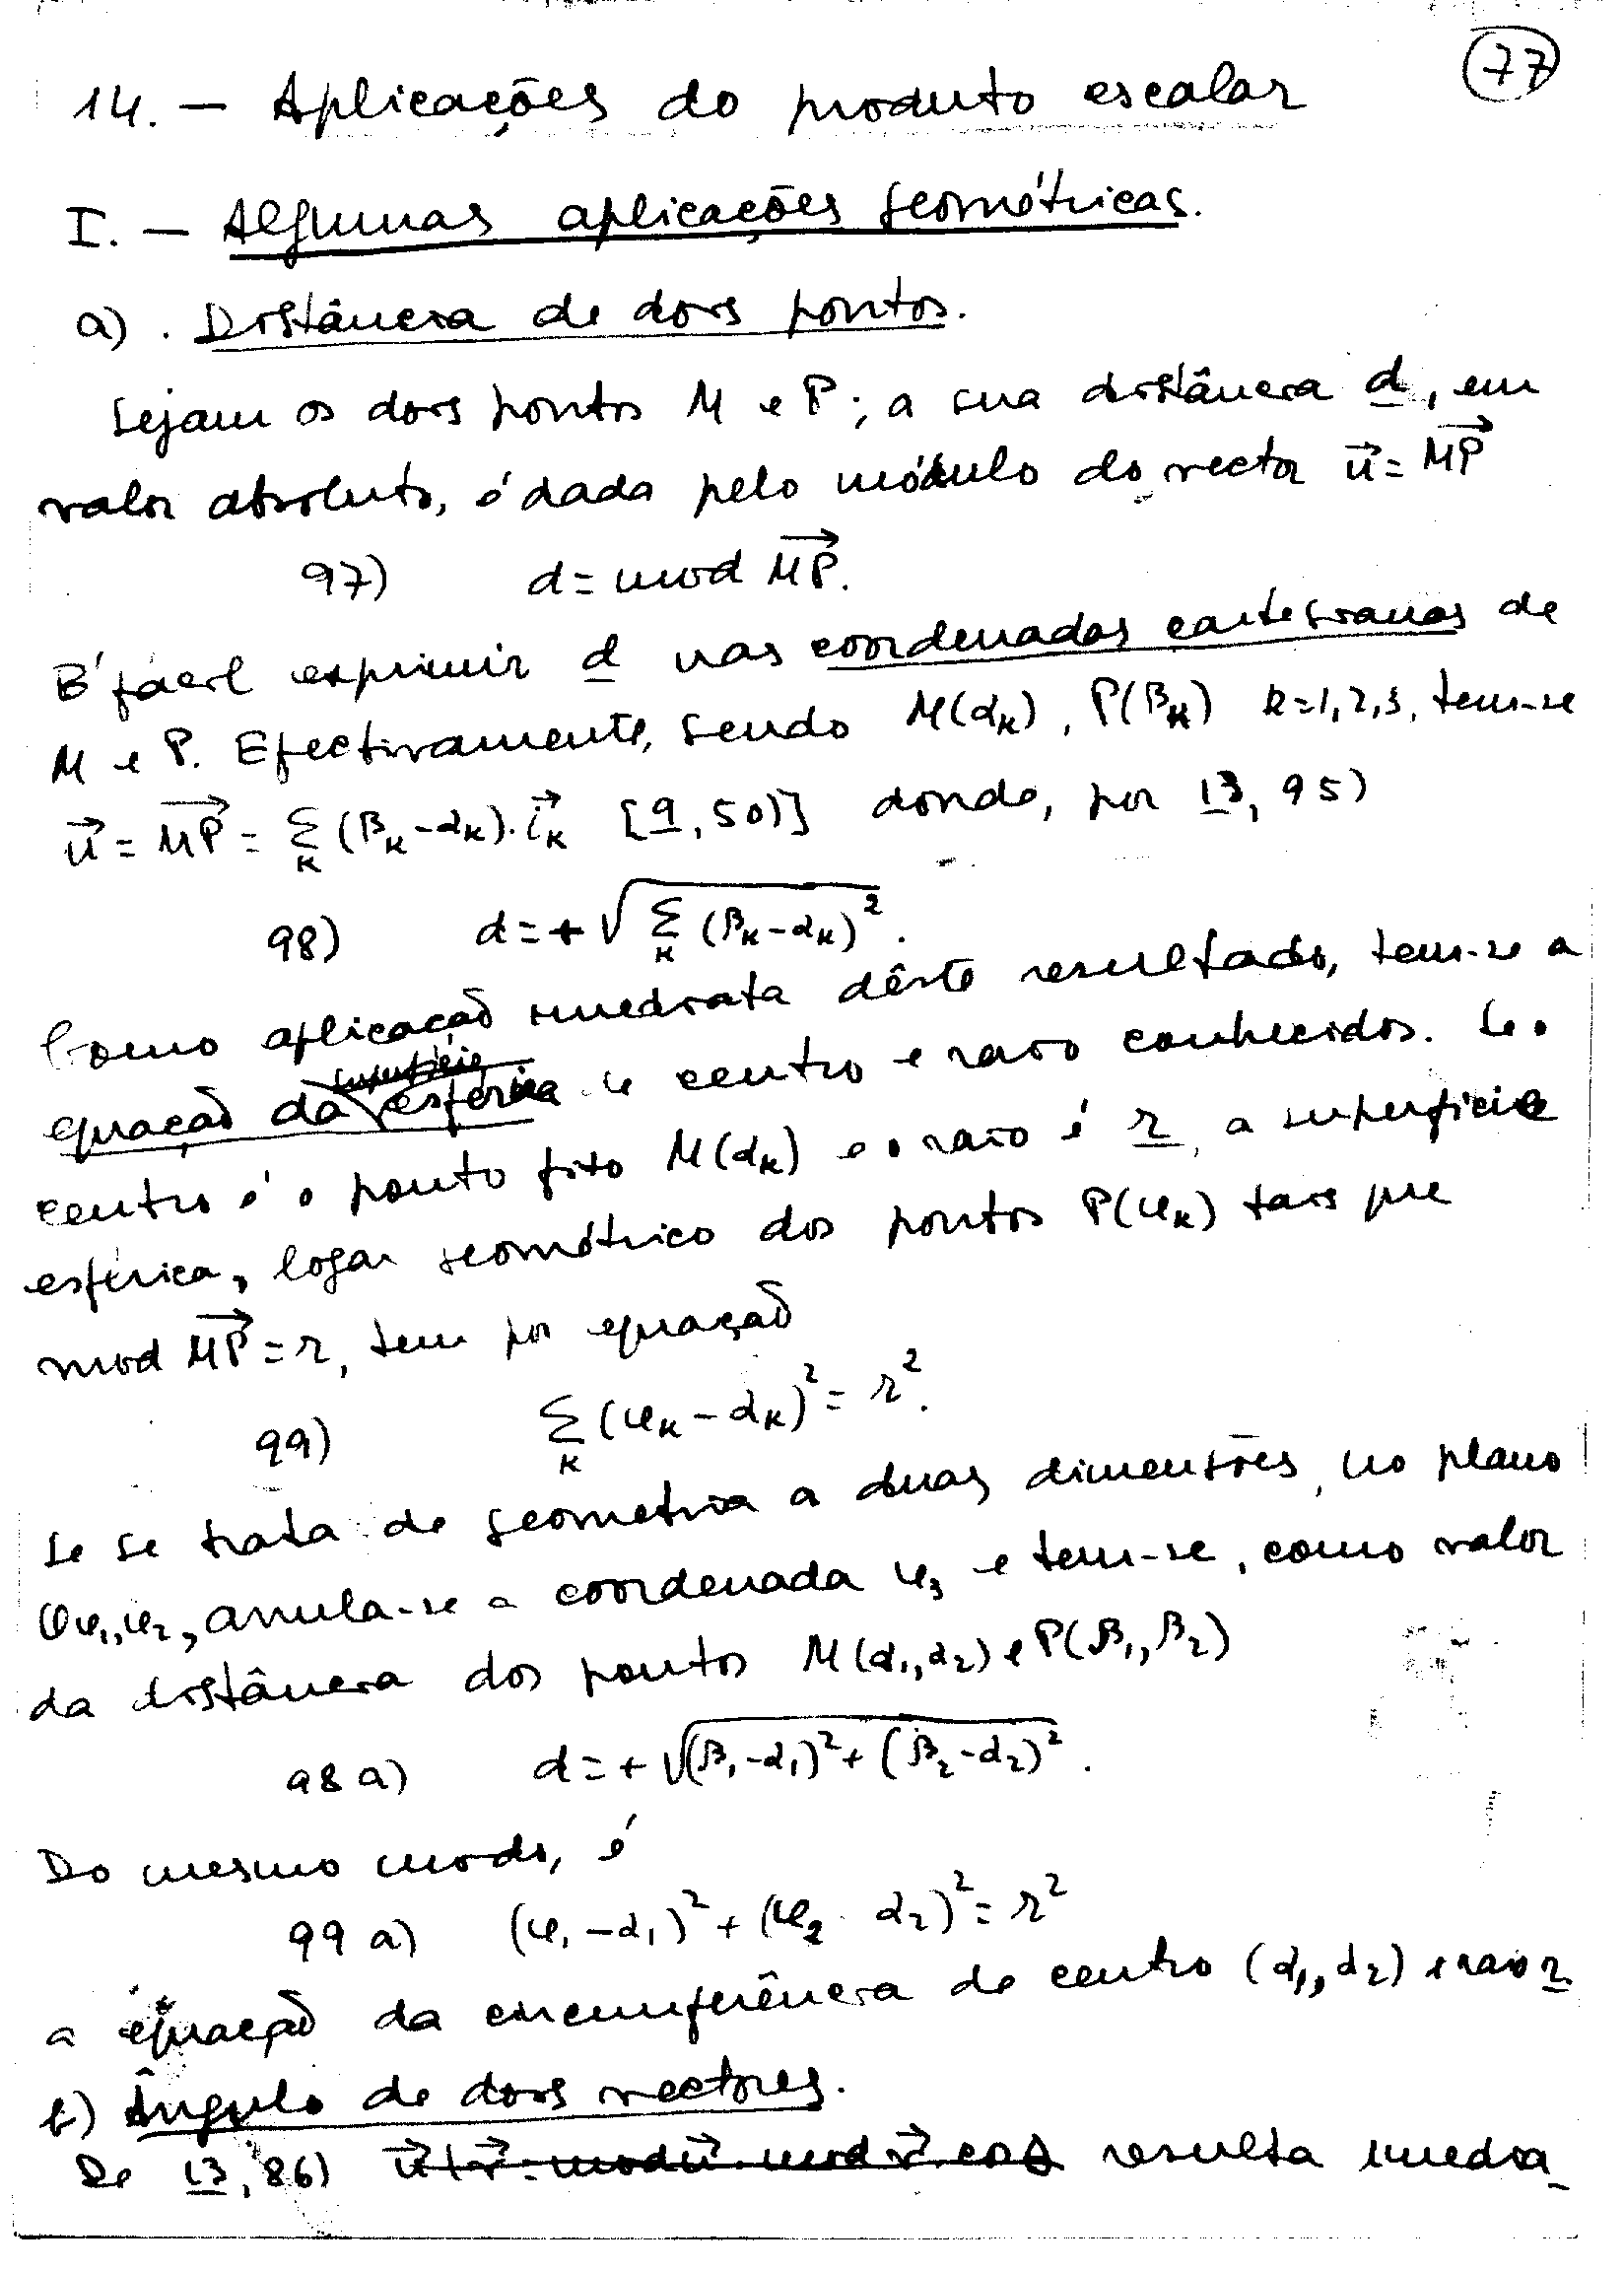 77
14. — Aplicações do produto escalar
I. — Algumas aplicações geométricas.
a). Distância de dois pontos.
Sejam os dois pontos M e P; a sua distância d, em
valor absoluto, é dada pelo módulo do vector u⃗ = MP⃗
97) d = mod MP⃗.
É fácil exprimir d nas coordenadas cartesianas de
M e P. Efectivamente, sendo M(α_k), P(β_k) k=1,2,3, tem-se
u⃗ = MP⃗ = Σ_k (β_k - α_k). i⃗_k [9, 50)] donde, por 13, 95)
98) d = + √Σ_k (β_k - α_k)².
Como aplicação imediata dêste resultado, tem-se a
equação da superfície esférica de centro e raio conhecidos. Se o
centro é o ponto fixo M(α_k) e o raio é r, a superfície
esférica, logar geométrico dos pontos P(φ_k) tais que
mod MP⃗ = r, tem por equação
99) Σ_k (φ_k - α_k)² = r².
Se se trata de geometria a duas dimensões, no plano
Oφ₁,φ₂, anula-se a coordenada φ₃ e tem-se, como valor
da distância dos pontos M(α₁,α₂) e P(β₁,β₂)
98 a) d = + √(β₁-α₁)² + (β₂-α₂)².
Do mesmo modo, é
99 a) (φ₁ - α₁)² + (φ₂ - α₂)² = r²
a equação da circunferência de centro (α₁,α₂) e raio r.
b) Ângulo de dois vectores.
De 13, 86) u⃗|v⃗ = mod u⃗. mod v⃗. cos θ resulta imedia-